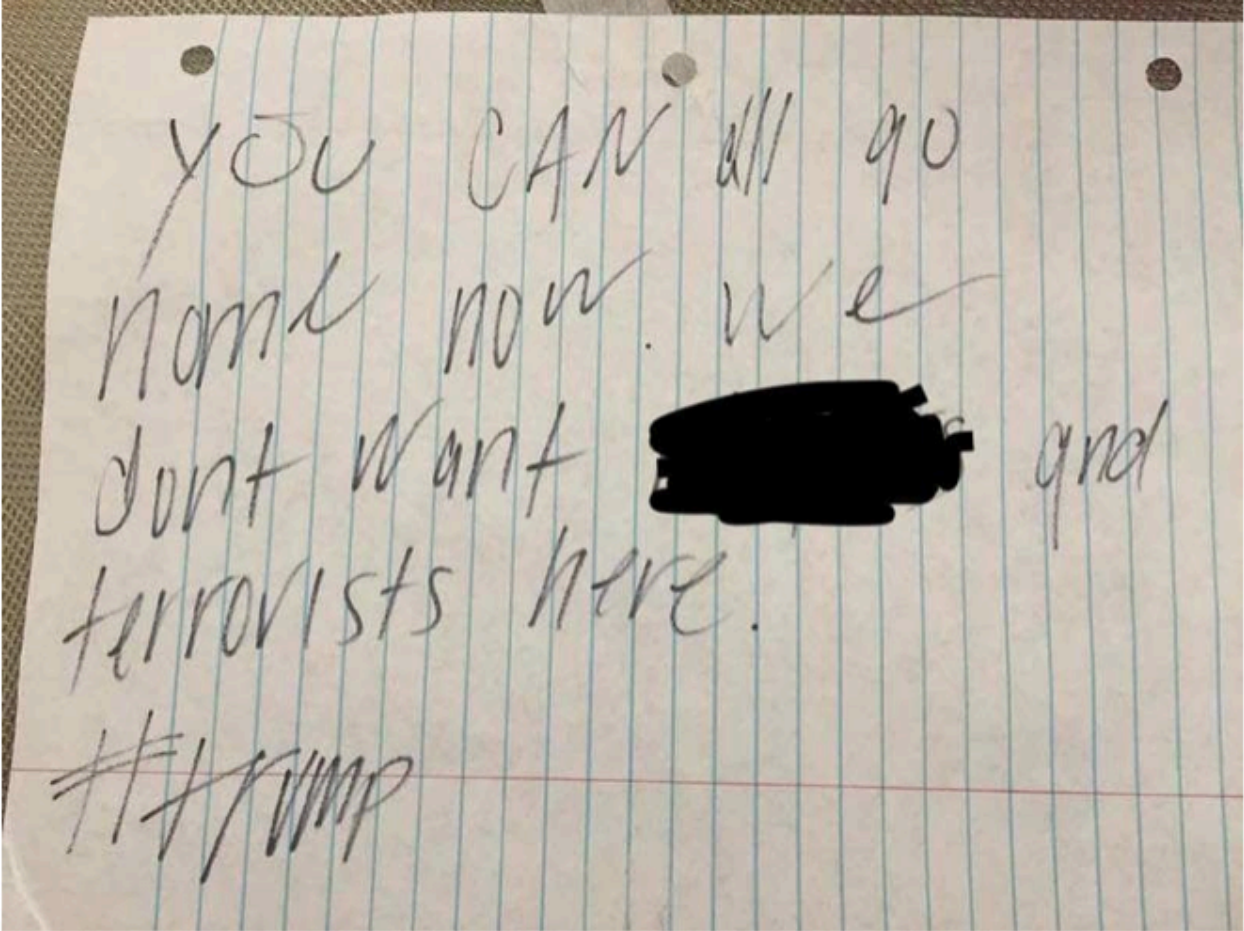 YOU CAN all go
home now. We
dont want and
terrorists here.
#trump